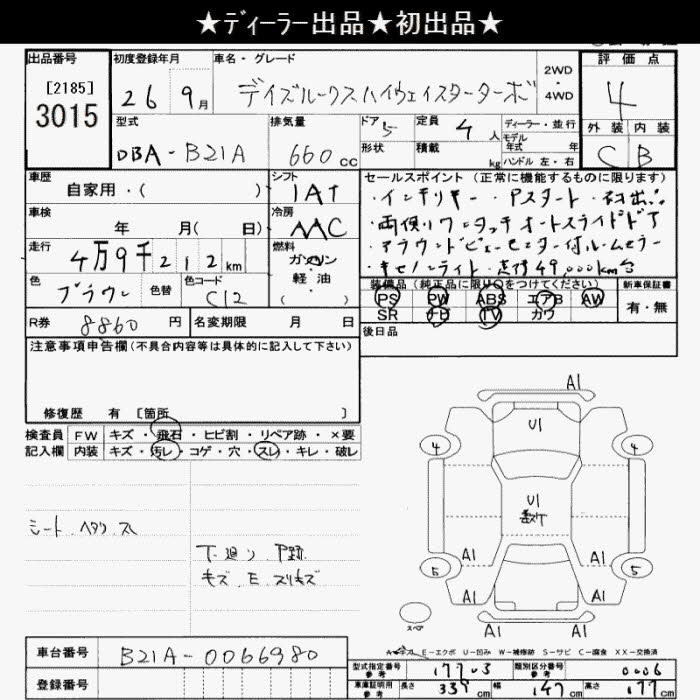 ★ディーラー出品★初出品★
出品番号 初度登録年月 車名・グレード 評価点
[2185] 3015
26 9月 デイズルークスハイウェイスターターボ 2WD・4WD 4
型式 排気量 ドア 定員 ディーラー・並行 外装 内装
DBA-B21A 660cc 5 4人 モデル年式 年
形状 積載 kg ハンドル 左・右 C B
車歴 シフト セールスポイント (正常に機能するものに限ります)
自家用・( ) IAT ・インテリキー・Pスタート・初出
車検 冷房 ・両側ワンタッチオートスライドドア
年 月( 日) AAC ・アラウンドビューモニター付ルームミラー
走行 燃料 ・キセノンライト・走行49,000km台
4万9千212km ガソリン・軽油・( )
色 色替 色コード 装備品(純正品に限り○をつけてください) 新車保証書
ブラウン C12 PS PW ABS エアB AW 有・無
SR ナビ TV カワ
R券 8860円 名変期限 月 日 後日品
注意事項申告欄(不具合内容等は具体的に記入して下さい)
修復歴 有 [箇所 ]
検査員 FW キズ・飛石・ヒビ割・リペア跡・×要
記入欄 内装 キズ・汚レ・コゲ・穴・スレ・キレ・破レ
シート ヘタリ スレ
下廻り 下跡
キズ E スリキズ
A1
U1
4 4
U1
数ケ
A1 A1
5 5
A1 A1
スペア
A1
A-キズ E-エクボ U-凹み W-補修跡 S-サビ C-腐食 XX-交換済
車台番号 B21A-0066980
登録番号
型式指定番号 参考 17703 類別区分番号 参考 0006
車庫証明用 参考 長さ 339cm 幅 147cm 高さ 177cm